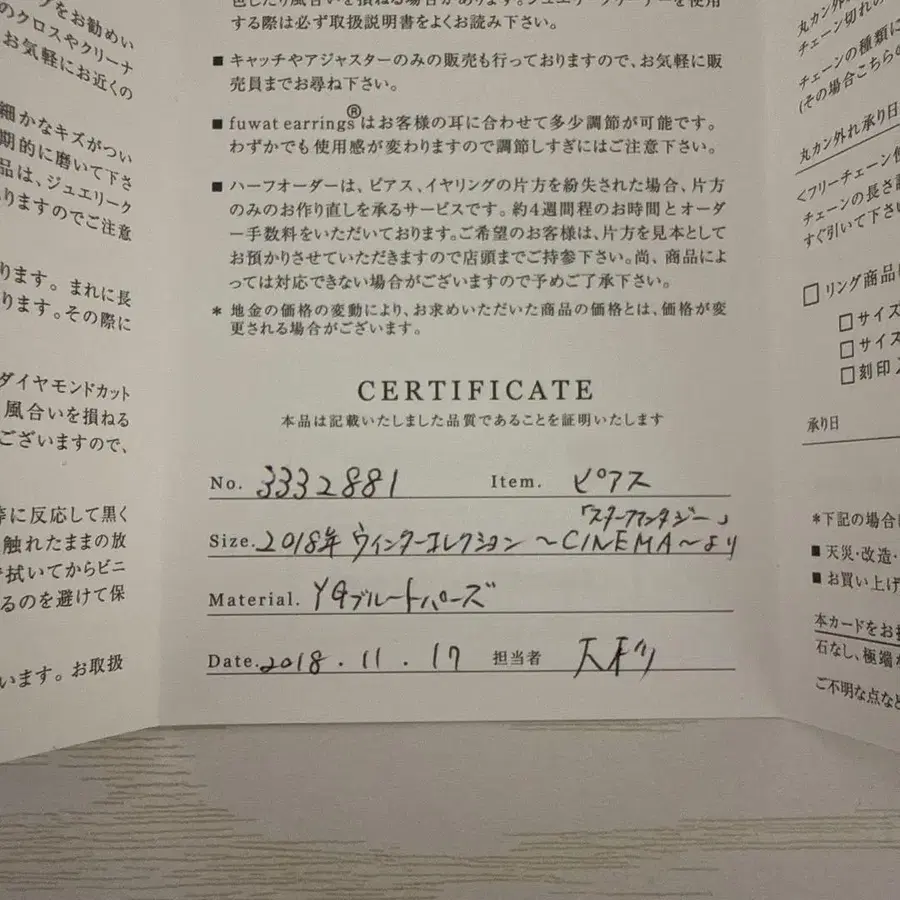 プをお勧めい
のクロスやクリーナ
お気軽にお近くの
細かなキズがつい
期的に磨いて下さ
品は、ジュエリーク
りますのでご注意
ります。まれに長
ります。その際に
ダイヤモンドカット
風合いを損ねる
ございますので、
に反応して黒く
触れたままの放
拭いてからビニ
るのを避けて保
います。お取扱
する際は必ず取扱説明書をよくお読み下さい。
■ キャッチやアジャスターのみの販売も行っておりますので、お気軽に販
売員までお尋ね下さい。
■ fuwat earrings®はお客様の耳に合わせて多少調節が可能です。
わずかでも使用感が変わりますので調節しすぎにはご注意下さい。
■ ハーフオーダーは、ピアス、イヤリングの片方を紛失された場合、片方
のみのお作り直しを承るサービスです。約4週間程のお時間とオーダ
ー手数料をいただいております。ご希望のお客様は、片方を見本として
お預かりさせていただきますので店頭までご持参下さい。尚、商品によ
っては対応できない場合がございますので予めご了承下さい。
* 地金の価格の変動により、お求めいただいた商品の価格とは、価格が変
更される場合がございます。
CERTIFICATE
本品は記載いたしました品質であることを証明いたします
No. 3332881 Item. ピアス
「スターファンタジー」
Size. 2018年 ウィンターコレクション 〜CINEMA〜より
Material. YGブルートパーズ
Date. 2018.11.17 担当者
丸カン外
チェーン切れの
チェーンの種類に
(その場合こちらの
丸カン外れ承り日
<フリーチェーン
チェーンの長さ
すぐ引いて下さい
□ リング商品
□ サイズ
□ サイズ
□ 刻印
承り日
*下記の場合
■ 天災・改造・
■ お買い上げ
本カードをお
石なし、極端
ご不明な点など